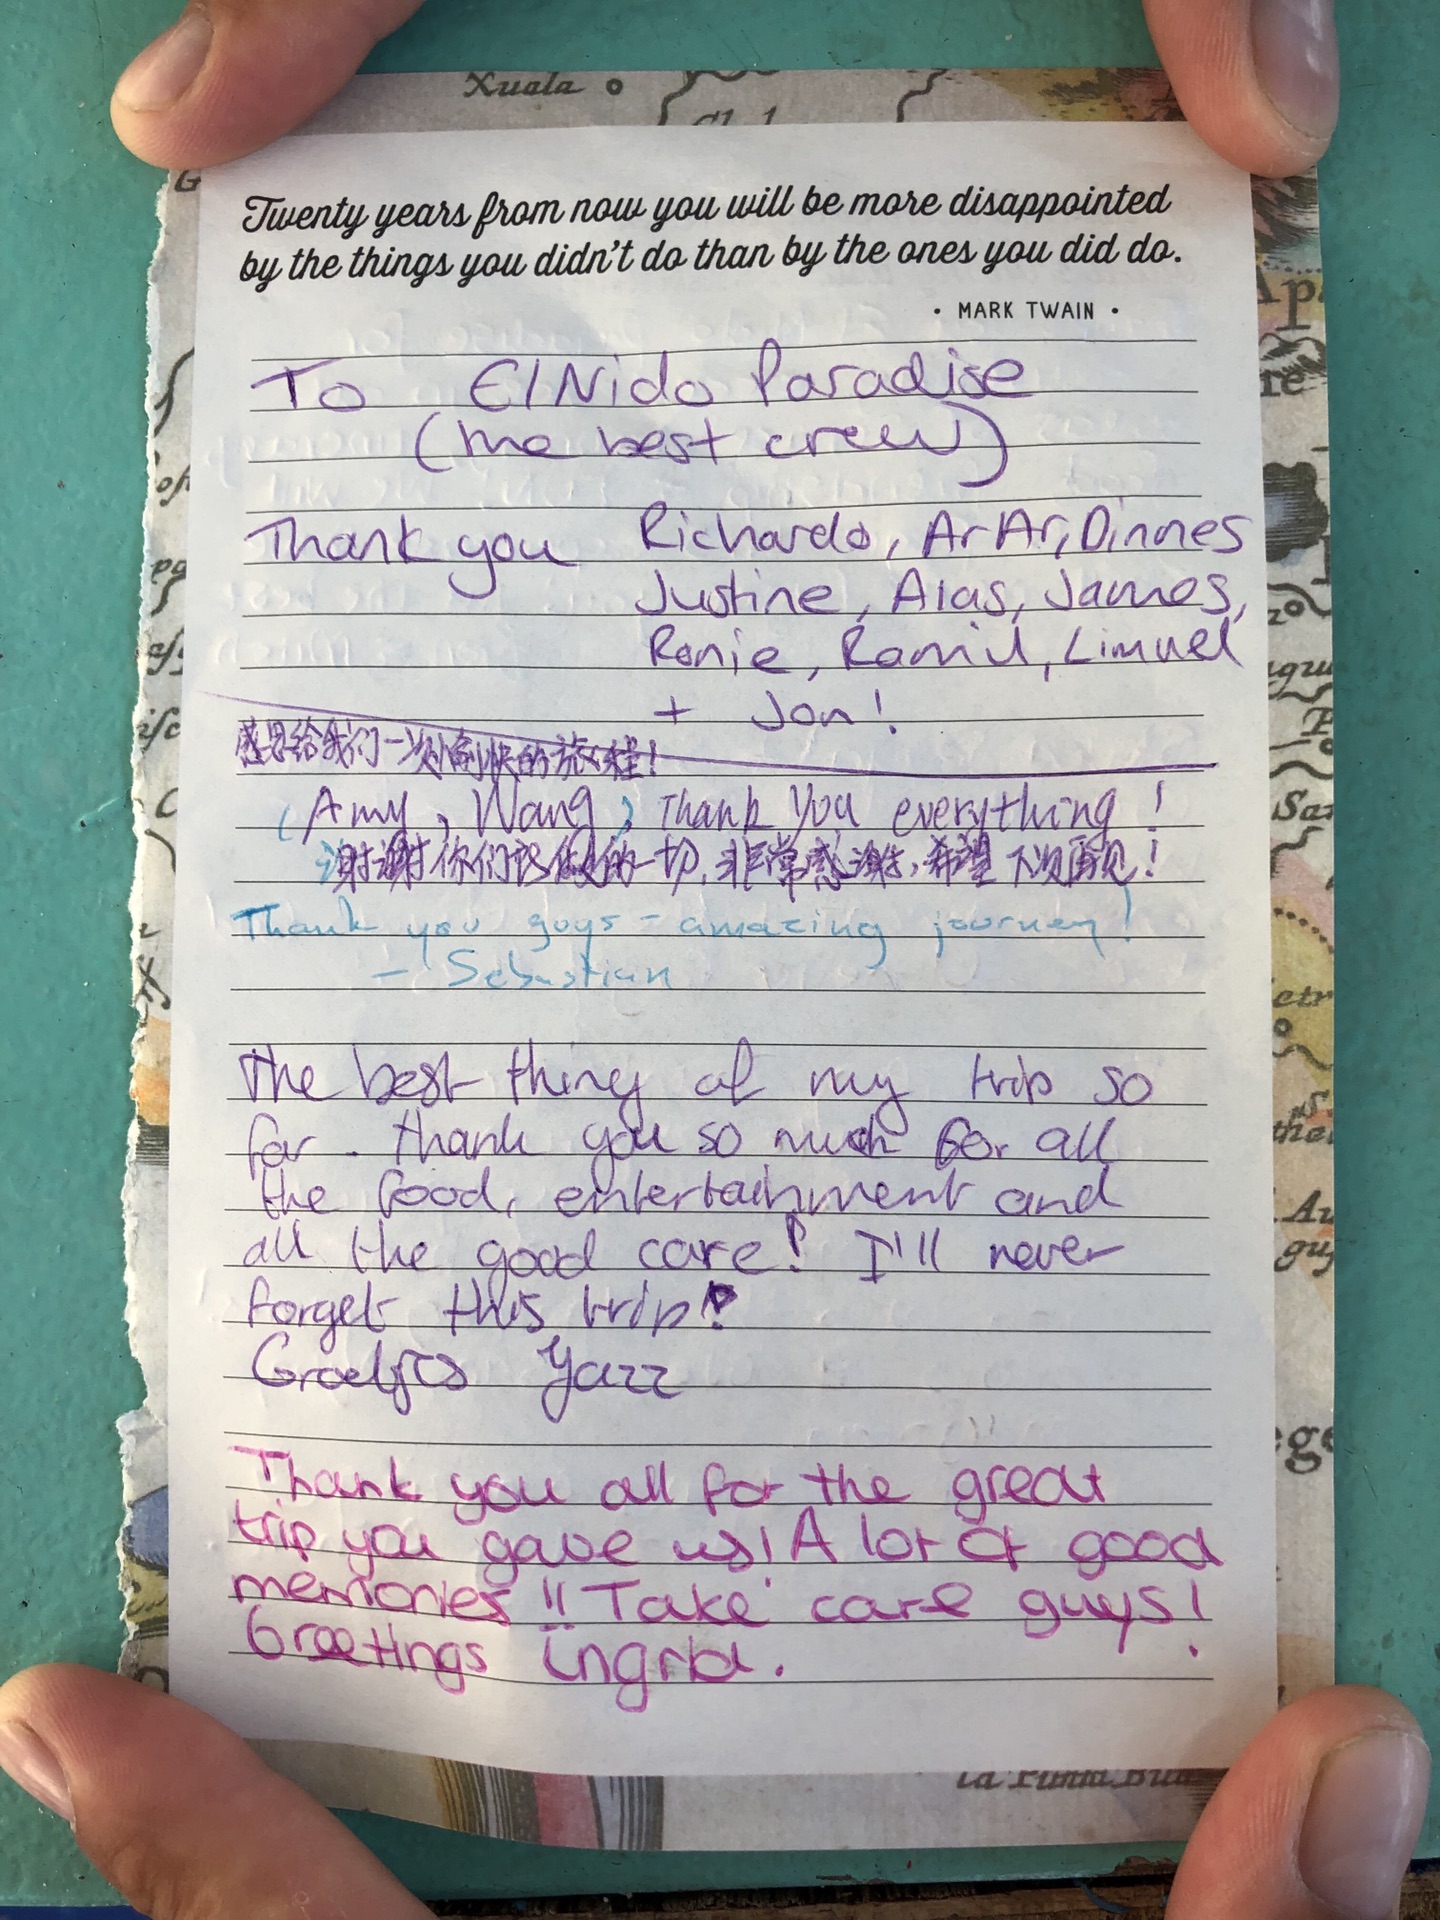 Xuala
Twenty years from now you will be more disappointed
by the things you didn't do than by the ones you did do.
• MARK TWAIN •
To ElNido Paradise
(the best crew)
Thank you Richardo, ArAr, Dinnes
Justine, Alas, James,
Ronie, Ramil, Limuel
+ Jon!
感恩给我们一次愉快的旅程!
(Amy, Wang) Thank You everything!
谢谢你们所做的一切,非常感谢,希望下次再见!
Thank you guys - amazing journey!
- Sebastian
The best thing of my trip so
far. thank you so much for all
the food, entertainment and
all the good care! I'll never
forget this trip!
Yazz
Thank you all for the great
trip you gave us! A lot of good
memories!! Take care guys!
Greetings Ingrid.